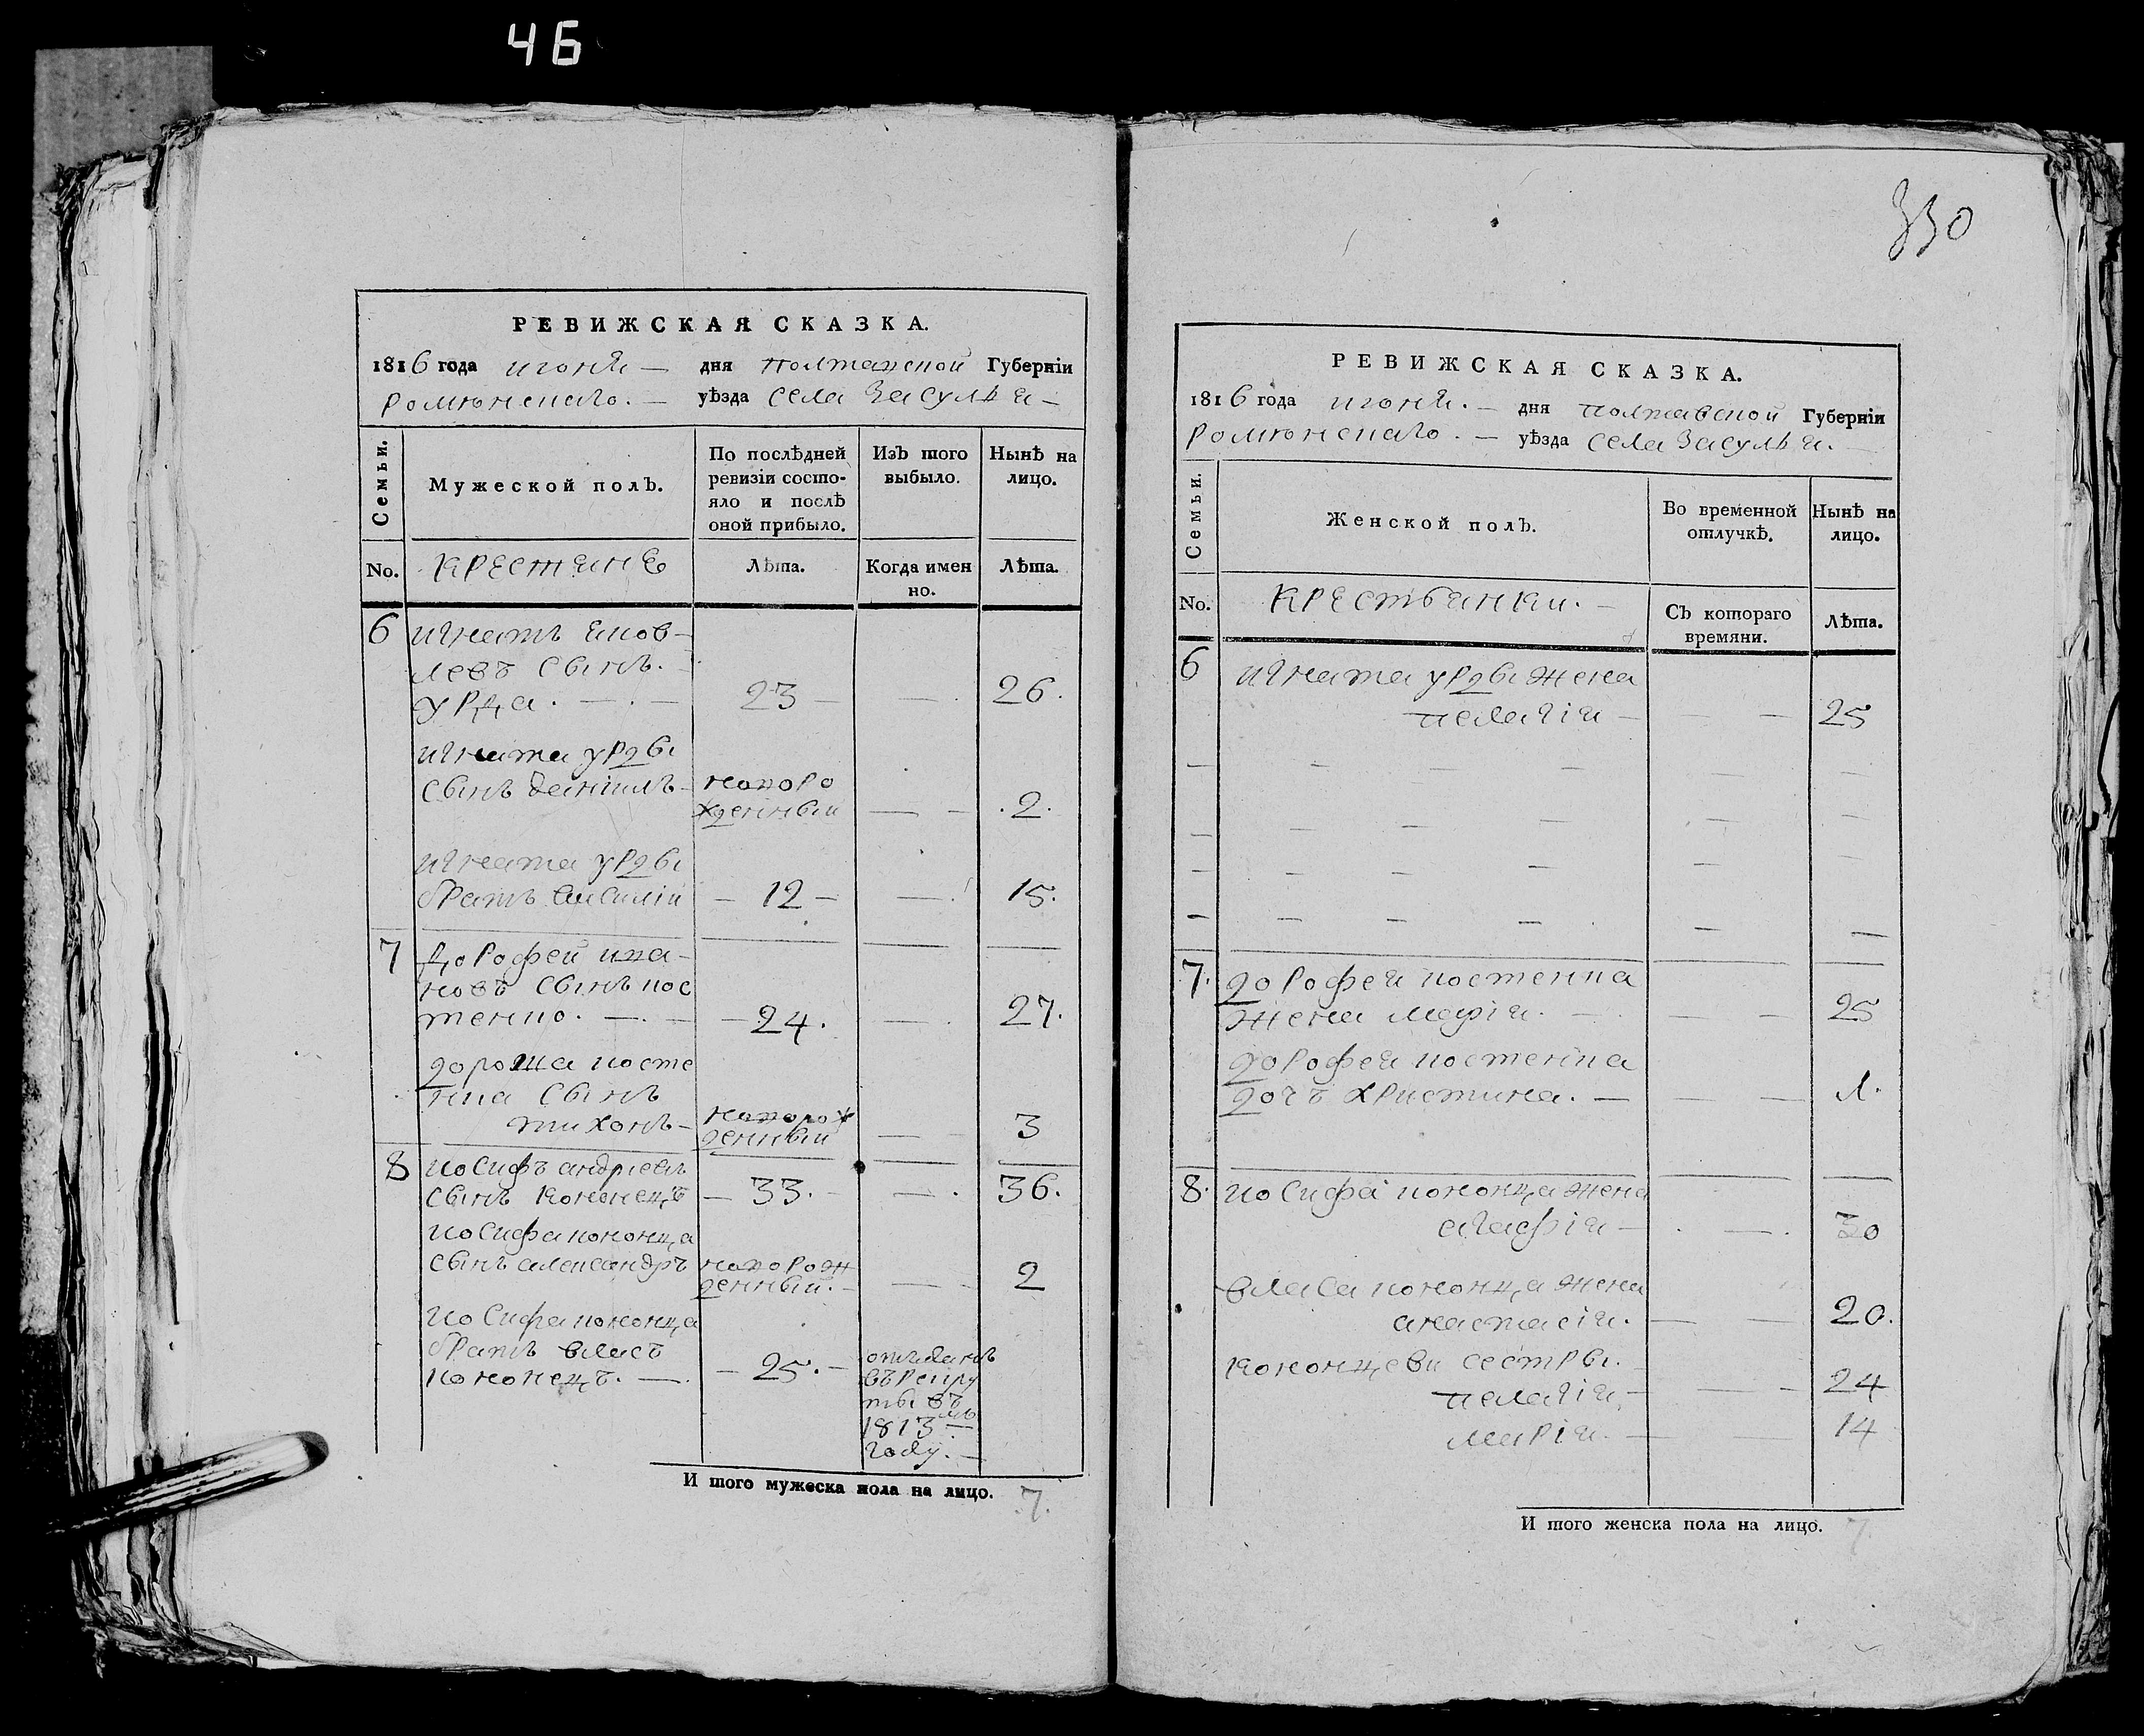 46
РЕВИЖСКАЯ СКАЗКА.
1816 года июня — дня полтавской Губерніи
роменскаго. — уѣзда села Засулья —
Семьи.
Мужеской полъ.
По послѣдней ревизіи состо-
яло и послѣ
оной прибыло.
Изъ того выбыло.
Нынѣ на лицо.
No. крестяне Лѣта. Когда имен
но. Лѣта.
6 игнатъ яков-
левъ сынъ.
урда. — . — 23 — — . 26.
игната урды
сынъ даніилъ — новоро
жденный — — . 2 .
игната урды
братъ василій — 12 — — . 15.
7 дорофей ива-
новъ сынъ кос
тенко. — . — — 24. — . 27.
дороша косте
нка сынъ
тихонъ — новорож
денный — — 3
8 иосифъ андріевъ
сынъ кононецъ — 33. — — . 36.
иосифа кононца
сынъ александръ новорож
денный. — — — 2
иосифа кононца
братъ власъ
кононецъ. — . — 25. — отъданъ
въ рекру
ты въ
1813мъ
году. —
И того мужеска пола на лицо. 7.
330
РЕВИЖСКАЯ СКАЗКА.
1816 года июня. — дня полтавской Губерніи
роменскаго. — уѣзда села Засулья. —
Семьи.
Женской полъ.
Во временной
отлучкѣ.
Нынѣ на
лицо.
No. крестьянки. — Съ котораго
времяни. Лѣта.
6 игната урды жена
пелагія — — — 25
7. дорофея костенка
жена марія. — — — 25
дорофея костенка
дочъ христина. — — — 1.
8. иосифа кононца жена
агафія — . — . 30
власа кононца жена
анастасія. — — 20.
кононцеви сестры. —
пелагія — — — 24
марія. — — 14
И того женска пола на лицо. 7